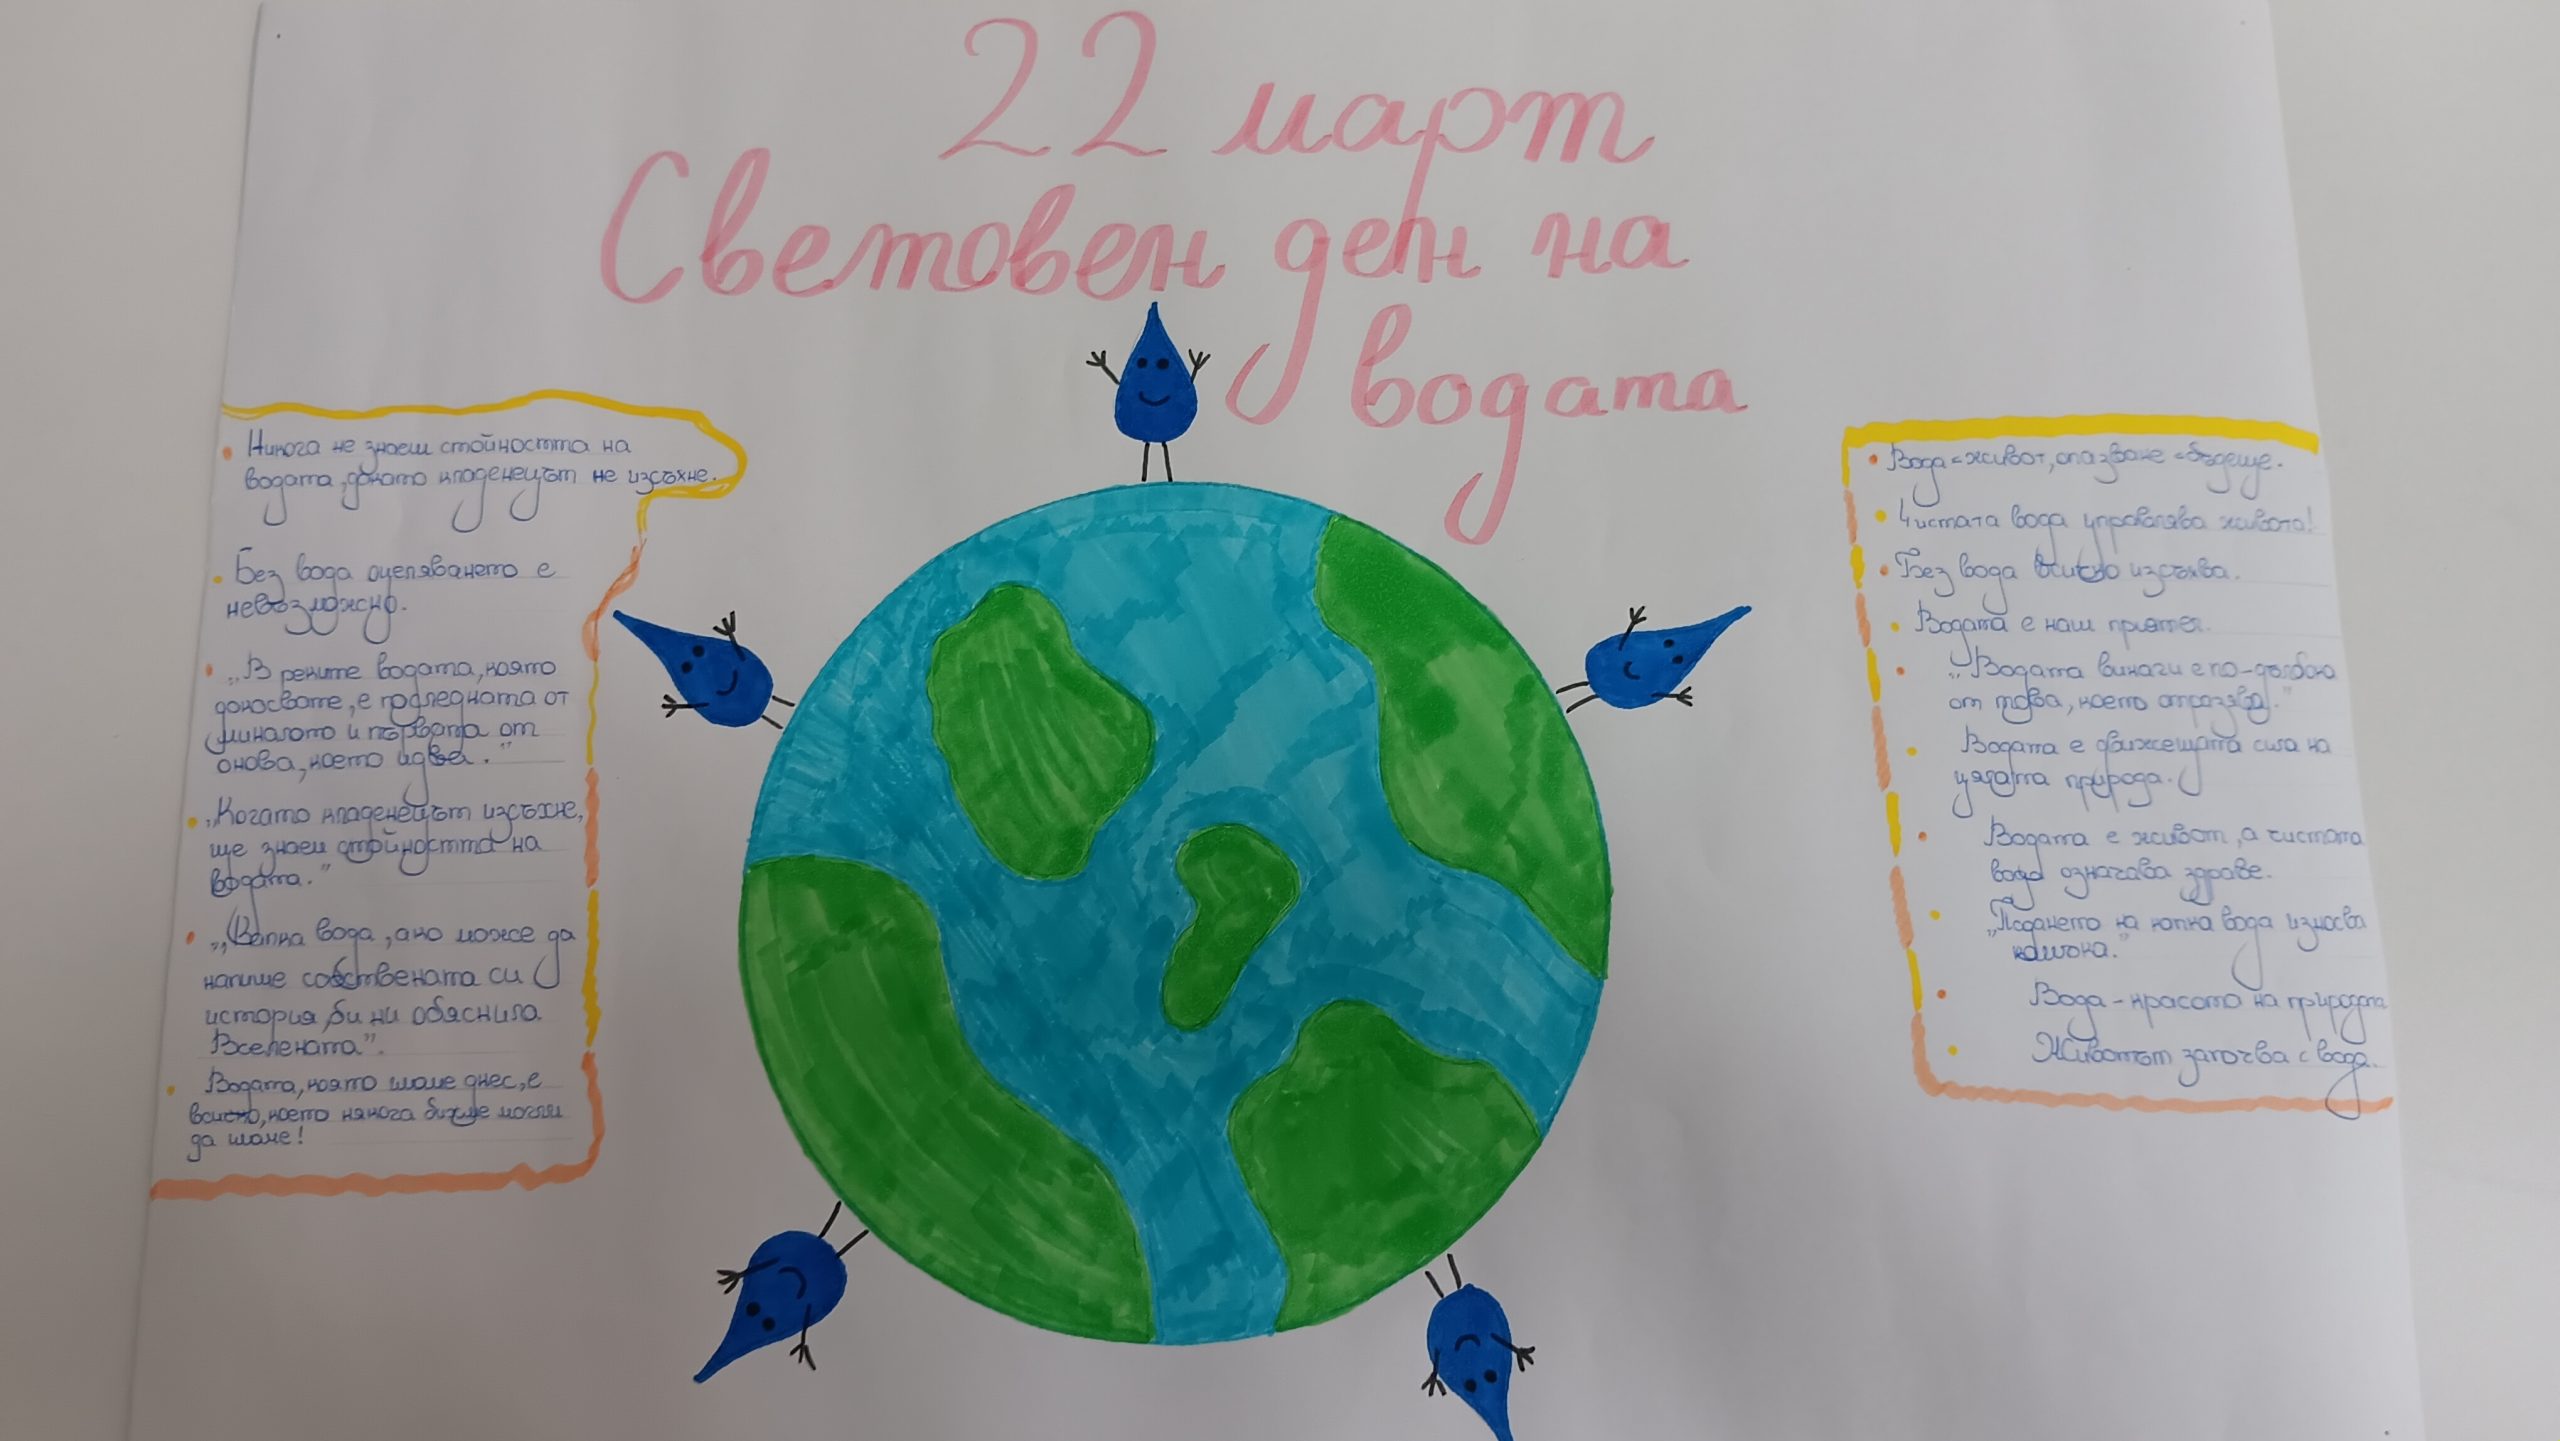 22 март
Световен ден на
водата
Никога не знаеш стойността на
водата, докато кладенецът не изсъхне.
Без вода оцеляването е
невъзможно.
„В реките водата, която
докосвате, е последната от
миналото и първата от
онова, което идва."
„Когато кладенецът изсъхне,
ще знаем стойността на
водата."
„Капка вода, ако може да
напише собствената си
история, би ни обяснила
Вселената".
Водата, която имаме днес, е
всичко, което някога бихме могли
да имаме!
Вода = живот, опазване = бъдеще.
Чистата вода управлява живота!
Без вода всичко изсъхва.
Водата е наш приятел.
„Водата винаги е по-дълбока
от това, което отразява."
Водата е движещата сила на
цялата природа.
Водата е живот, а чистата
вода означава здраве.
„Падането на капка вода износва
камъка."
Вода - красота на природата
Животът започва с вода.